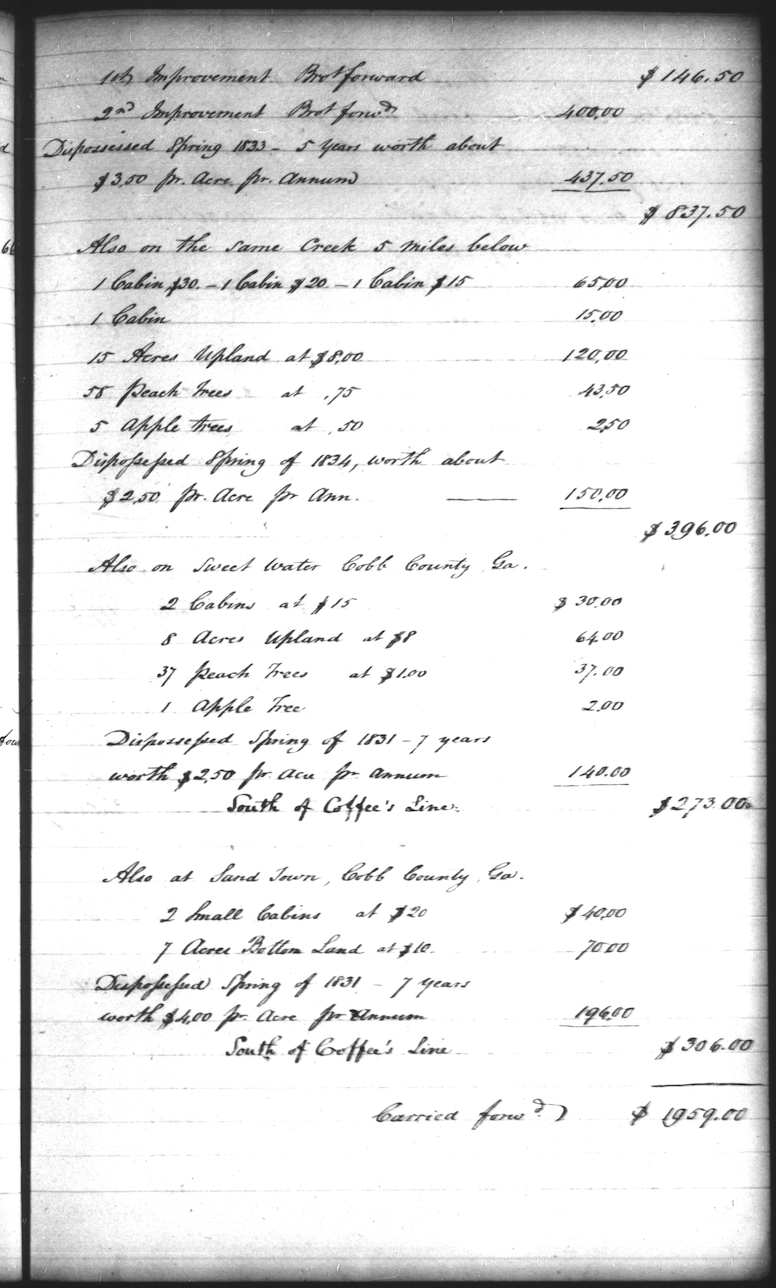 1st Improvement Brot forward $146.50
2nd Improvement Brot forwd 400,00
Dispossessed Spring 1833 - 5 Years worth about
$3,50 pr. Acre pr. Annum 437,50
$837.50
Also on the same Creek 5 miles below
1 Cabin $30. - 1 Cabin $20 - 1 Cabin $15 65,00
1 Cabin 15,00
15 Acres Upland at $8,00 120,00
58 Peach Trees at ,75 43,50
5 Apple trees at ,50 2,50
Dispossessed Spring of 1834, worth about
$2,50 pr. Acre pr Ann. 150,00
$396.00
Also on Sweet Water Cobb County Ga.
2 Cabins at $15 $30.00
8 Acres Upland at $8 64.00
37 Peach Trees at $1.00 37.00
1 Apple Tree 2,00
Dispossessed Spring of 1831 - 7 years
worth $2,50 pr. Acre pr. annum 140.00
South of Coffee's Line. $273.00
Also at Sand Town, Cobb County Ga.
2 Small Cabins at $20 $40,00
7 Acres Bottom Land at $10. 70.00
Dispossessed Spring of 1831 - 7 years
worth $4,00 pr. Acre pr Annum 196,00
South of Coffee's Line $306.00
Carried forwd $1959.00